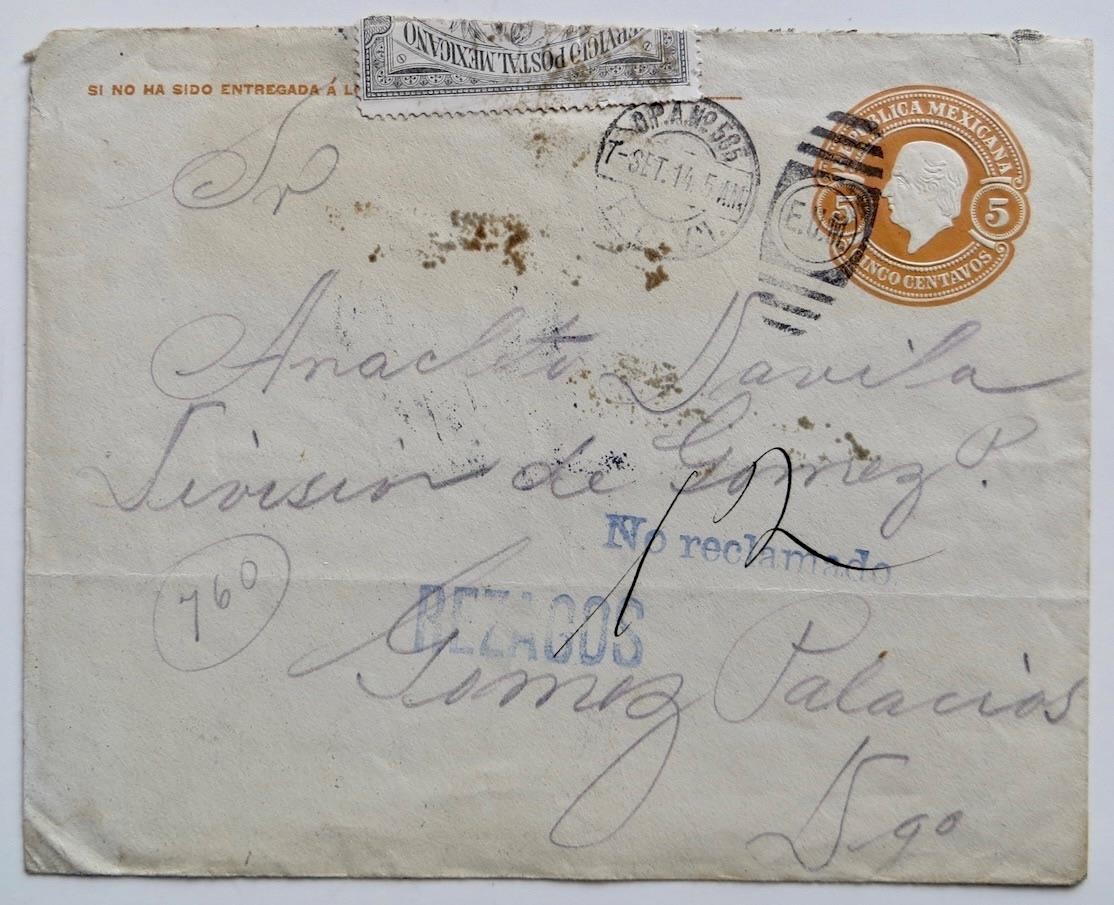 SERVICIO POSTAL MEXICANO
SI NO HA SIDO ENTREGADA Á
O.P.A. Nº 585
7-SET. 14. 5 AM
REPUBLICA MEXICANA
5 5
CINCO CENTAVOS
Sr
Anacleto Davila
Division de Gomez P.
12
No reclamado
760
REZAGOS
Gomez Palacios
Dgo